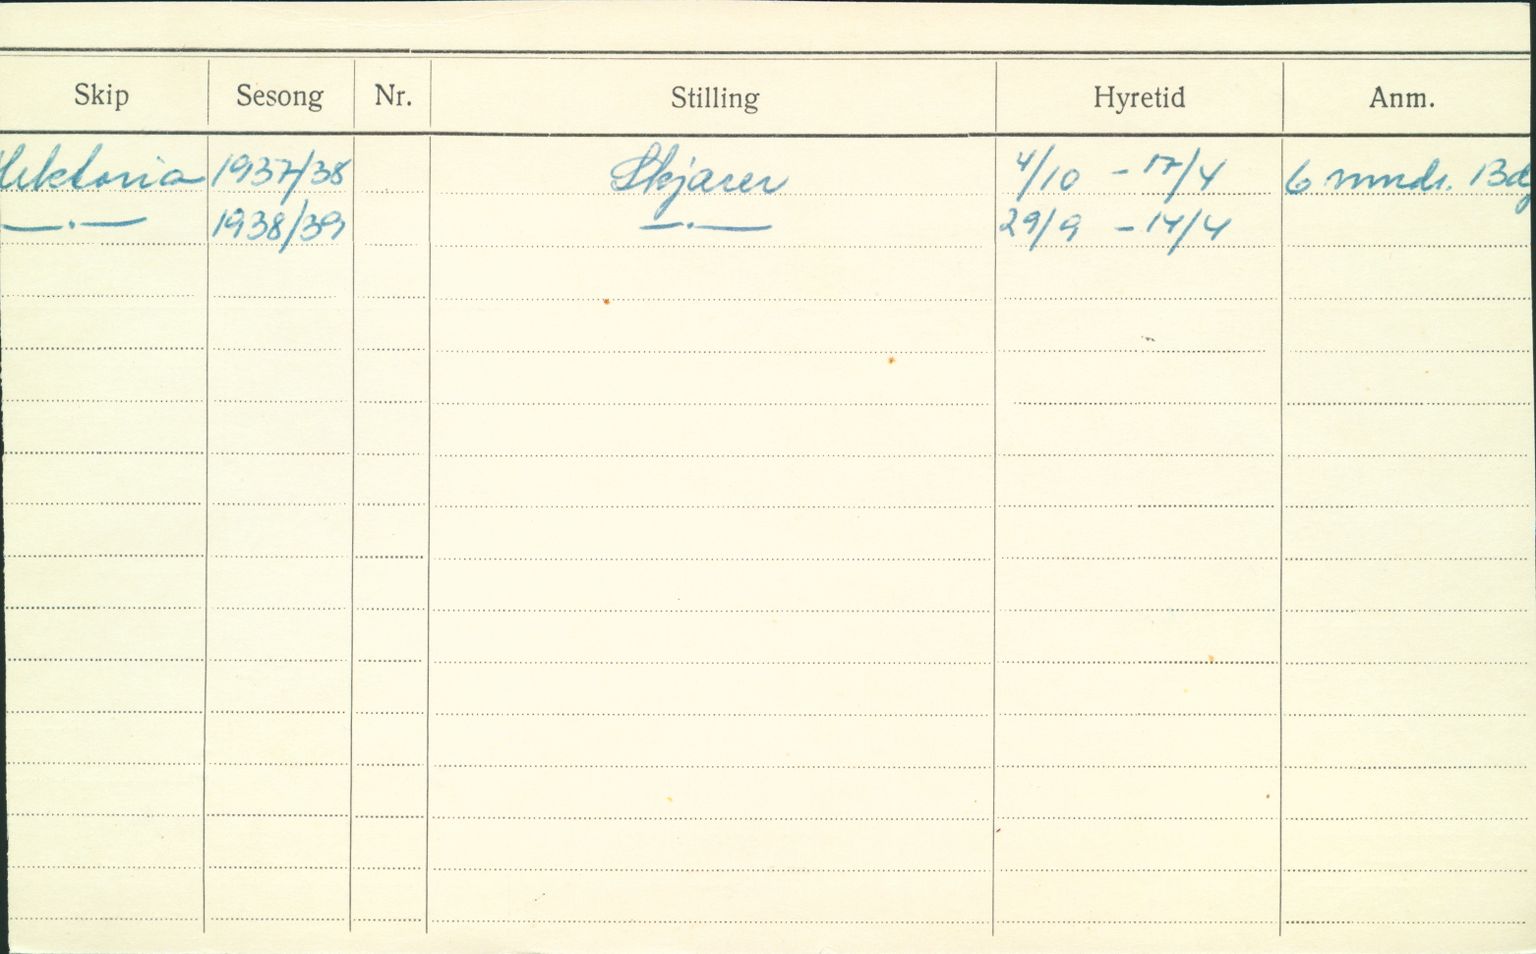 Skip Sesong Nr. Stilling Hyretid Anm.
Hektoria 1937/38 Skjærer 4/10 - 17/4 6 mndr. Bdg
—.— 1938/39 —.— 29/9 - 14/4